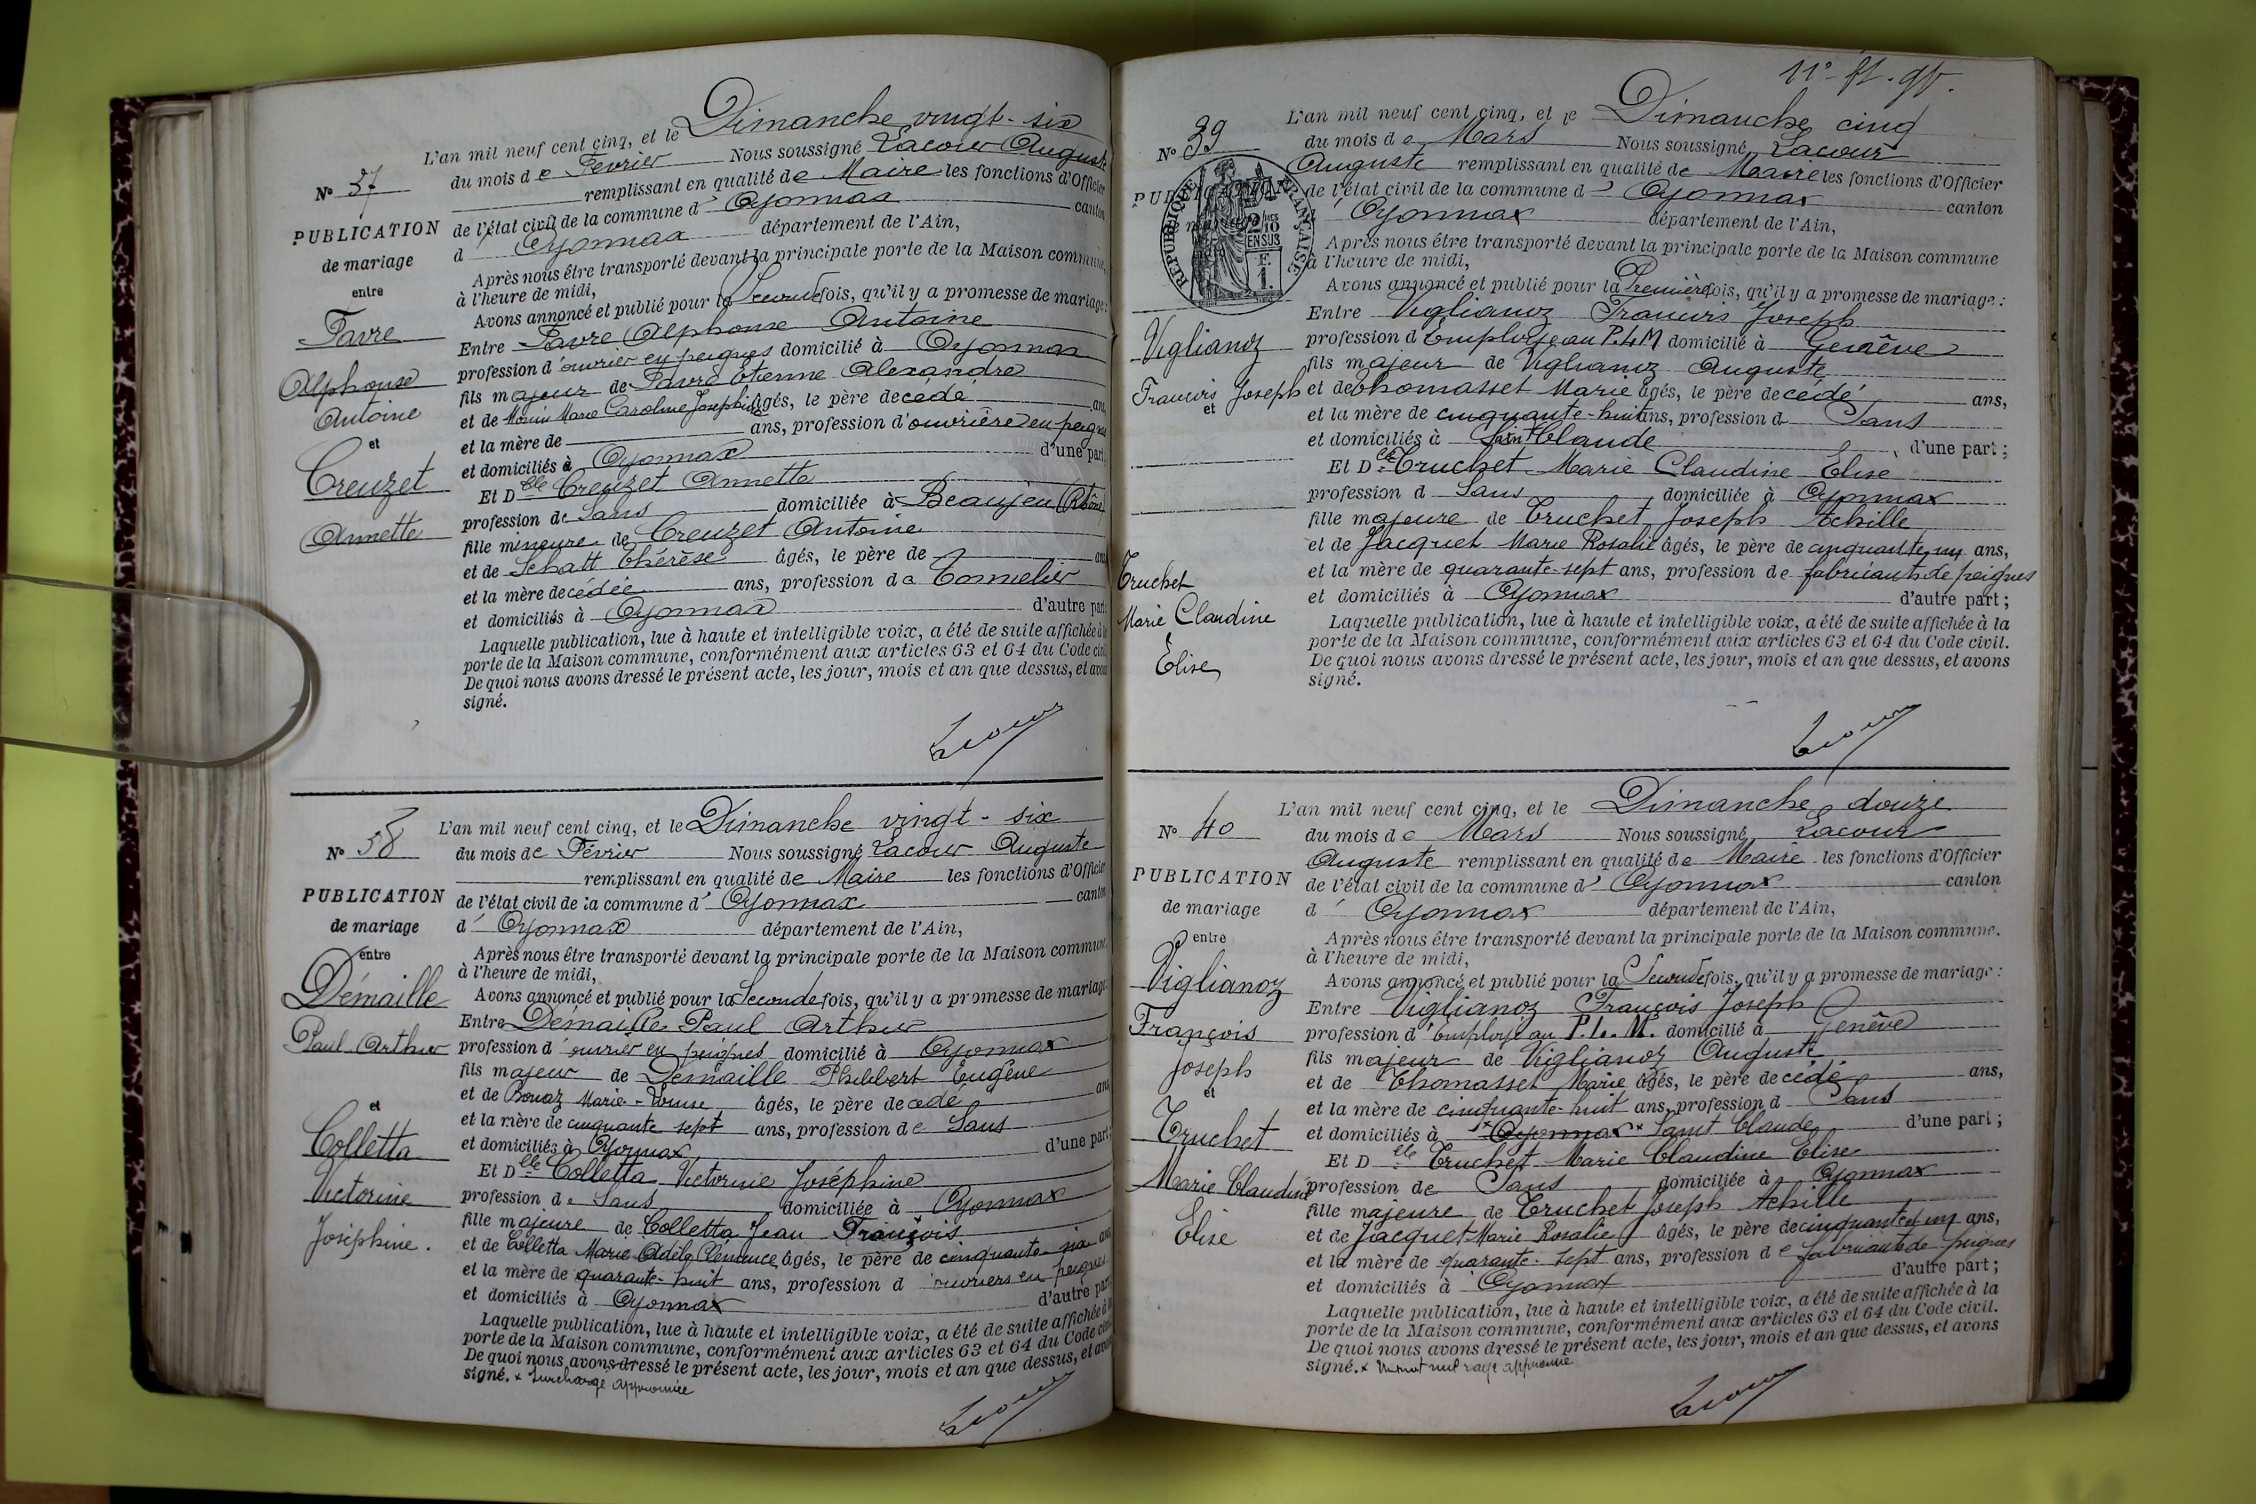 L'an mil neuf cent cinq, et le Dimanche vingt-six
du mois de Février Nous soussigné Lacour Auguste
remplissant en qualité de Maire les fonctions d'Officier
de l'état civil de la commune d' Oyonnax canton
d' Oyonnax département de l'Ain,
Après nous être transporté devant la principale porte de la Maison commune,
à l'heure de midi,
Avons annoncé et publié pour la Seconde fois, qu'il y a promesse de mariage:
Entre Favre Alphonse Antoine
profession d'ouvrier en peignes domicilié à Oyonnax
fils majeur de Favre Etienne Alexandre
et de Marie Caroline Joséphine âgés, le père décédé ans,
et la mère de ans, profession d'ouvrière en peignes
et domiciliés à Oyonnax d'une part;
Et Dlle Creuzet Annette
profession de Sans domiciliée à Beaujeu (Rhône)
fille mineure de Creuzet Antoine
et de Schatt Thérèse âgés, le père de ans
et la mère décédée ans, profession de Tonnelier
et domiciliés à Oyonnax d'autre part;
Laquelle publication, lue à haute et intelligible voix, a été de suite affichée à la
porte de la Maison commune, conformément aux articles 63 et 64 du Code civil.
De quoi nous avons dressé le présent acte, les jour, mois et an que dessus, et avons
signé.
Lacour
N° 37
PUBLICATION
de mariage
entre
Favre
Alphonse
Antoine
et
Creuzet
Annette
L'an mil neuf cent cinq, et le Dimanche vingt-six
du mois de Février Nous soussigné Lacour Auguste
remplissant en qualité de Maire les fonctions d'Officier
de l'état civil de la commune d' Oyonnax canton
d' Oyonnax département de l'Ain,
Après nous être transporté devant la principale porte de la Maison commune,
à l'heure de midi,
Avons annoncé et publié pour la Seconde fois, qu'il y a promesse de mariage:
Entre Démaille Paul Arthur
profession d'ouvrier en peignes domicilié à Oyonnax
fils majeur de Démaille Philibert Eugène
et de Bonaz Marie-Louise âgés, le père décédé ans
et la mère de cinquante sept ans, profession de Sans
et domiciliés à Oyonnax d'une part;
Et Dlle Colletta Victorine Joséphine
profession de Sans domiciliée à Oyonnax
fille majeure de Colletta Jean François.
et de Colletta Marie Adèle Clémence âgés, le père de cinquante-six ans
et la mère de quarante-huit ans, profession d ouvriers en peignes
et domiciliés à Oyonnax d'autre part
Laquelle publication, lue à haute et intelligible voix, a été de suite affichée à la
porte de la Maison commune, conformément aux articles 63 et 64 du Code civil.
De quoi nous avons dressé le présent acte, les jour, mois et an que dessus, et avons
signé. x Surcharge approuvée
Lacour
N° 38
PUBLICATION
de mariage
entre
Démaille
Paul Arthur
et
Colletta
Victorine
Joséphine.
L'an mil neuf cent cinq, et le Dimanche cinq
du mois de Mars Nous soussigné, Lacour
Auguste remplissant en qualité de Maire les fonctions d'Officier
de l'état civil de la commune d' Oyonnax canton
d' Oyonnax département de l'Ain,
Après nous être transporté devant la principale porte de la Maison commune
à l'heure de midi,
Avons annoncé et publié pour la Première fois, qu'il y a promesse de mariage:
Entre Viglianoz François Joseph
profession d'Employé au P.L.M domicilié à Genève
fils majeur de Viglianoz Auguste
et de Thomasset Marie âgés, le père décédé ans,
et la mère de cinquante-huit ans, profession d Sans
et domiciliés à Saint Claude d'une part;
Et Dlle Truchet Marie Claudine Elise
profession d Sans domiciliée à Oyonnax
fille majeure de Truchet Joseph Achille
et de Jacquet Marie Rosalie âgés, le père de cinquante un ans,
et la mère de quarante-sept ans, profession de fabricants de peignes
et domiciliés à Oyonnax d'autre part;
Laquelle publication, lue à haute et intelligible voix, a été de suite affichée à la
porte de la Maison commune, conformément aux articles 63 et 64 du Code civil.
De quoi nous avons dressé le présent acte, les jour, mois et an que dessus, et avons
signé.
Lacour
N° 39
RÉPUBLIQUE FRANÇAISE
2/10
EN SUS
F.
1.
Viglianoz
François Joseph
et
Truchet
Marie Claudine
Elise
L'an mil neuf cent cinq, et le Dimanche douze
du mois de Mars Nous soussigné, Lacour
Auguste remplissant en qualité de Maire les fonctions d'Officier
de l'état civil de la commune d' Oyonnax canton
d' Oyonnax département de l'Ain,
Après nous être transporté devant la principale porte de la Maison commune.
à l'heure de midi,
Avons annoncé et publié pour la Seconde fois, qu'il y a promesse de mariage:
Entre Viglianoz François Joseph
profession d'employé au P.L.M. domicilié à Genève
fils majeur de Viglianoz Auguste
et de Thomasset Marie âgés, le père décédé ans,
et la mère de cinquante-huit ans, profession d Sans
et domiciliés à Oyonnax x Saint Claude d'une part;
Et Dlle Truchet Marie Claudine Elise
profession de Sans domiciliée à Oyonnax
fille majeure de Truchet Joseph Achille
et de Jacquet Marie Rosalie âgés, le père de cinquante et un ans,
et la mère de quarante-sept ans, profession de fabricants de peignes
et domiciliés à Oyonnax d'autre part;
Laquelle publication, lue à haute et intelligible voix, a été de suite affichée à la
porte de la Maison commune, conformément aux articles 63 et 64 du Code civil.
De quoi nous avons dressé le présent acte, les jour, mois et an que dessus, et avons
signé. x un mot nul rayé approuvé
Lacour
N° 40
PUBLICATION
de mariage
entre
Viglianoz
François
Joseph
et
Truchet
Marie Claudine
Elise